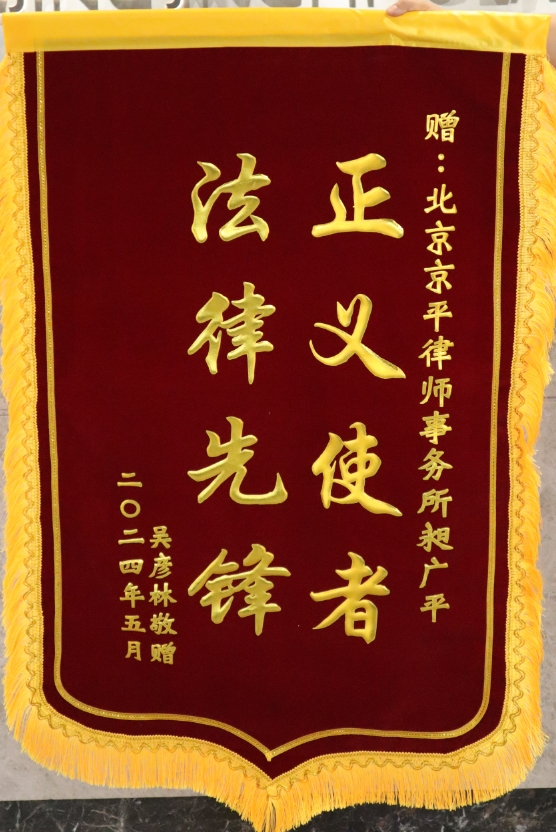 赠：北京京平律师事务所昶广平
正义使者
法律先锋
吴彦林敬赠
二〇二四年五月